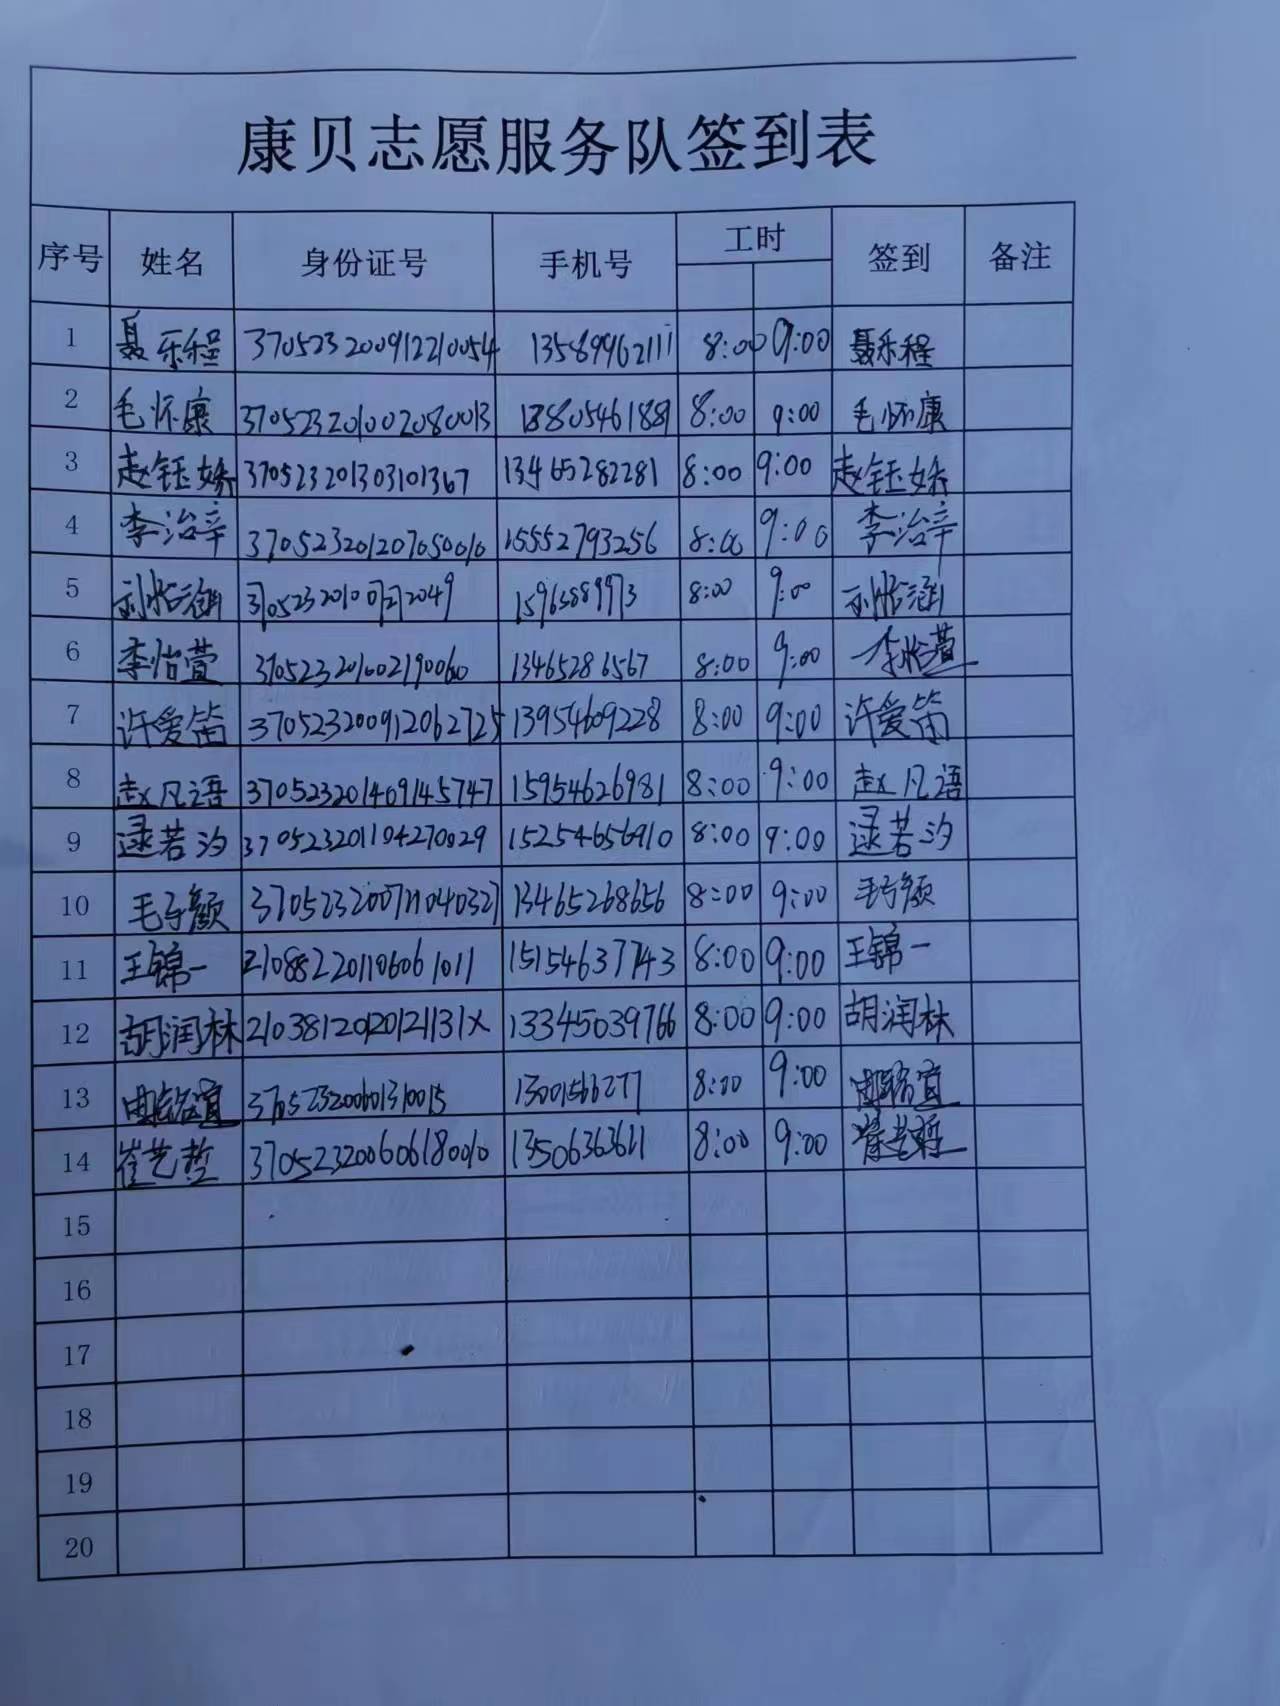 康贝志愿服务队签到表
序号 姓名 身份证号 手机号 工时 签到 备注
1 聂乐程 370523200912210054 13589962111 8:00 9:00 聂乐程
2 毛怀康 370523201002080013 8:00 9:00 毛怀康
3 赵钰姝 370523201303101367 13465282281 8:00 9:00 赵钰姝
4 李治辛 370523201207050010 15552793256 8:00 9:00 李治辛
5 8:00 9:00
6 李怡萱 370523201002190060 13465286567 8:00 9:00 李怡萱
7 许爱笛 370523200912062725 13954609228 8:00 9:00 许爱笛
8 赵凡语 370523201409145747 15954626981 8:00 9:00 赵凡语
9 逯若汐 370523201104270029 15254656910 8:00 9:00 逯若汐
10 毛子颜 13465268656 8:00 9:00 毛子颜
11 王锦一 210882201106061011 15154637743 8:00 9:00 王锦一
12 胡润林 21038120120121131X 13345039766 8:00 9:00 胡润林
13 370523200601310015 13001566277 8:00 9:00
14 崔艺哲 370523200606180010 13506363611 8:00 9:00 崔艺哲
15
16
17
18
19
20